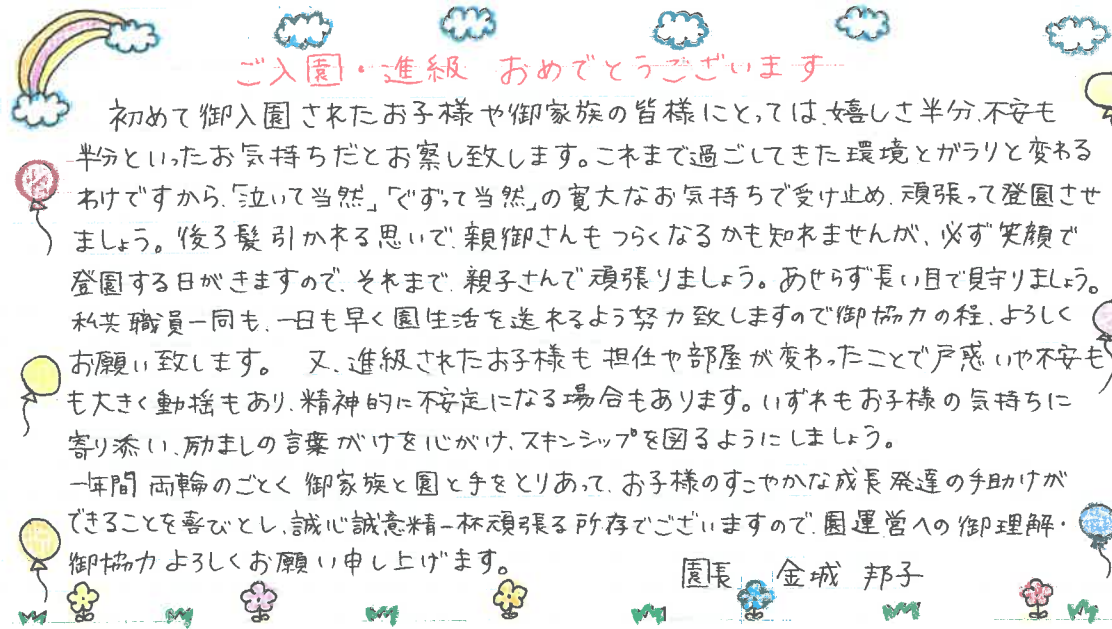 ご入園・進級 おめでとうございます
初めて御入園されたお子様や御家族の皆様にとっては、嬉しさ半分、不安も
半分といったお気持ちだとお察し致します。これまで過ごしてきた環境とガラリと変わる
わけですから、「泣いて当然」「ぐずって当然」の寛大なお気持ちで受け止め、頑張って登園させ
ましょう。後ろ髪引かれる思いで、親御さんもつらくなるかも知れませんが、必ず笑顔で
登園する日がきますので、それまで、親子さんで頑張りましょう。あせらず長い目で見守りましょう。
私共職員一同も、一日も早く園生活を送れるよう努力致しますので御協力の程、よろしく
お願い致します。 又、進級されたお子様も担任や部屋が変わったことで戸惑いや不安も
も大きく動揺もあり、精神的に不安定になる場合もあります。いずれもお子様の気持ちに
寄り添い、励ましの言葉がけを心がけ、スキンシップを図るようにしましょう。
一年間両輪のごとく御家族と園と手をとりあって、お子様のすこやかな成長発達の手助けが
できることを喜びとし、誠心誠意精一杯頑張る所存でございますので、園運営への御理解・
御協力よろしくお願い申し上げます。
園長 金城 邦子